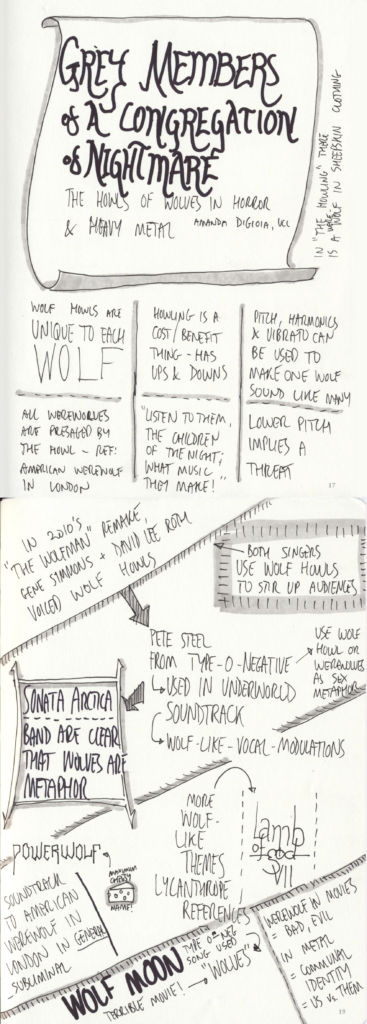 GREY MEMBERS
of A CONGREGATION
of NIGHTMARE
THE HOWLS OF WOLVES IN HORROR
& HEAVY METAL AMANDA DIGIOIA, UCL
IN "THE HOWLING" THERE
IS A WOLF IN SHEEPSKIN CLOTHING
WOLF HOWLS ARE
UNIQUE TO EACH
WOLF
HOWLING IS A
COST/BENEFIT
THING - HAS
UPS & DOWNS
PITCH, HARMONICS
& VIBRATO CAN
BE USED TO
MAKE ONE WOLF
SOUND LIKE MANY
ALL WEREWOLVES
ARE PRESAGED BY
THE HOWL - REF:
AMERICAN WEREWOLF
IN LONDON
"LISTEN TO THEM,
THE CHILDREN
OF THE NIGHT;
WHAT MUSIC
THEY MAKE!"
LOWER PITCH
IMPLIES A
THREAT
17
IN 2010'S
"THE WOLFMAN" REMAKE,
GENE SIMMONS + DAVID LEE ROTH
VOICED WOLF HOWLS
BOTH SINGERS
USE WOLF HOWLS
TO STIR UP AUDIENCES
PETE STEEL
FROM TYPE-O-NEGATIVE
USED IN UNDERWORLD
SOUNDTRACK
WOLF-LIKE-VOCAL-MODULATIONS
USE WOLF
HOWL OR
WEREWOLVES
AS SEX
METAPHOR
SONATA ARCTICA
BAND ARE CLEAR
THAT WOLVES ARE
METAPHOR
MORE
WOLF-
LIKE
THEMES
LYCANTHROPE
REFERENCES
Lamb
of God
VII
POWERWOLF
MAXIMUM
CHEESY
NAME!
SOUNDTRACK
TO AMERICAN
WEREWOLF IN
LONDON IN GENERAL
- SUBLIMINAL
WOLF MOON
TYPE O NEG
SONG USED
"WOLVES"
TERRIBLE MOVIE!
WEREWOLF IN MOVIES
= BAD, EVIL
IN METAL
= COMMUNAL
IDENTITY
= US vs THEM
19